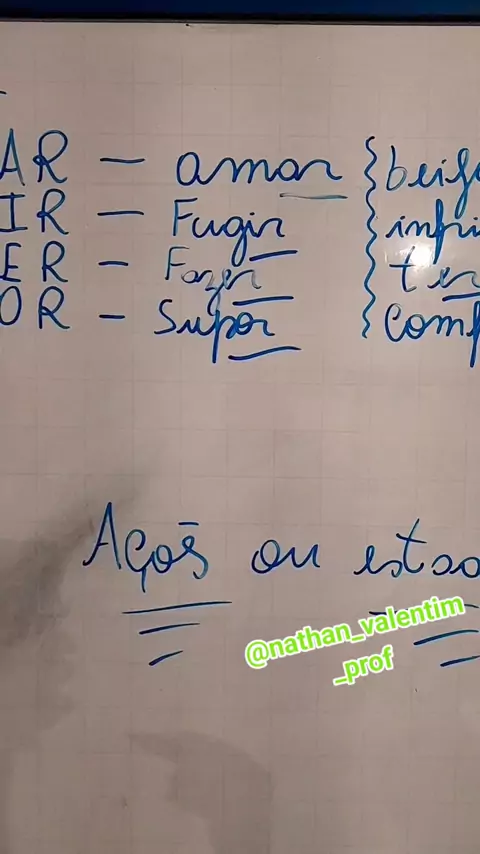 AR - amar } beij
IR - Fugir } infri
ER - Fazer } ter
OR - Supor } comp
Ações ou estad
@nathan_valentim
_prof